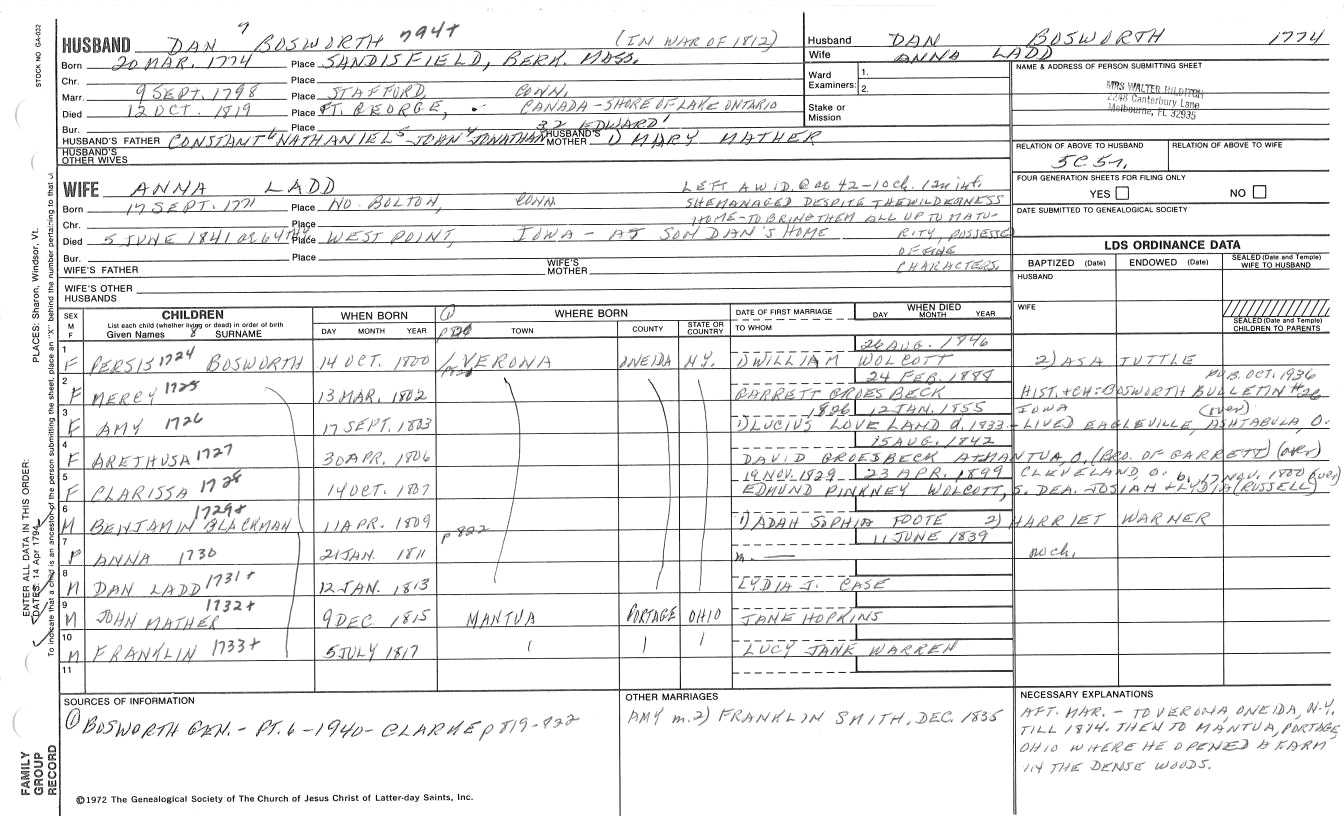 STOCK NO GA-032
HUSBAND DAN 7 BOSWORTH 794+ (IN WAR OF 1812)
Born 20 MAR. 1774 Place SANDISFIELD, BERK. MASS.
Chr. Place
Marr. 9 SEPT. 1798 Place STAFFORD, CONN.
Died 12 OCT. 1819 Place FT. GEORGE, CANADA - SHORE OF LAKE ONTARIO
Bur. Place
HUSBAND'S FATHER CONSTANT 6 NATHANIEL 5 JOHN 4 JONATHAN 3 2 EDWARD 1 HUSBAND'S MOTHER MARY MATHER
HUSBAND'S OTHER WIVES
Husband DAN BOSWORTH 1774
Wife ANNA LADD
Ward 1.
Examiners: 2.
Stake or Mission
NAME & ADDRESS OF PERSON SUBMITTING SHEET
MRS WALTER HILDITCH
2248 Canterbury Lane
Melbourne, FL 32935
RELATION OF ABOVE TO HUSBAND RELATION OF ABOVE TO WIFE
5C5r.
FOUR GENERATION SHEETS FOR FILING ONLY
YES NO
DATE SUBMITTED TO GENEALOGICAL SOCIETY
WIFE ANNA LADD
Born 17 SEPT. 1771 Place NO. BOLTON, CONN.
Chr. Place
Died 5 JUNE 1841 or 64TH Place WEST POINT, IOWA - AT SON DAN'S HOME
Bur. Place
LEFT A WID. @ 42 - 10 ch. 1 in inf.
SHE MANAGED DESPITE THE WILDERNESS
HOME - TO BRING THEM ALL UP TO MATU-
RITY, POSSESSE
OF FINE
CHARACTERS.
WIFE'S FATHER WIFE'S MOTHER
WIFE'S OTHER HUSBANDS
LDS ORDINANCE DATA
BAPTIZED (Date) ENDOWED (Date) SEALED (Date and Temple) WIFE TO HUSBAND
HUSBAND
WIFE
SEALED (Date and Temple) CHILDREN TO PARENTS
SEX M F CHILDREN List each child (whether living or dead) in order of birth Given Names 8 SURNAME
WHEN BORN DAY MONTH YEAR
① WHERE BORN TOWN COUNTY STATE OR COUNTRY
DATE OF FIRST MARRIAGE TO WHOM
WHEN DIED DAY MONTH YEAR
26 AUG. 1846
1 F PERSIS 1724 BOSWORTH 14 OCT. 1800 VERONA ONEIDA N.Y. 1) WILLIAM WOLCOTT 2) ASA TUTTLE
24 FEB. 1889 PUB. OCT. 1936
2 F MERCY 1725 13 MAR. 1802 GARRETT GROESBECK HIST. + CH: BOSWORTH BULLETIN #26
1826 12 JAN. 1855 IOWA (over)
3 F AMY 1726 17 SEPT. 1803 1) LUCIUS LOVELAND d. 1833 - LIVED EAGLEVILLE, ASHTABULA, O.
15 AUG. 1842
4 F ARETHUSA 1727 30 APR. 1806 DAVID GROESBECK AT MANTUA, O. (BRO. OF GARRETT) (over)
19 NOV. 1829 23 APR. 1899 CLEVELAND, O. b. 17 NOV. 1800 (over)
5 F CLARISSA 1728 14 OCT. 1807 EDMUND PINKNEY WOLCOTT, S. DEA. JOSIAH + LYDIA (RUSSELL)
6 M BENJAMIN BLACKMAN 1729+ 11 APR. 1809 p 822 1) ADAH SOPHIA FOOTE 2) HARRIET WARNER
11 JUNE 1839
7 F ANNA 1730 21 JAN. 1811 m. — no ch.
8 M DAN LADD 1731+ 12 JAN. 1813 LYDIA J. CASE
9 M JOHN MATHER 1732+ 9 DEC 1815 MANTUA PORTAGE OHIO JANE HOPKINS
10 M FRANKLIN 1733+ 5 JULY 1817 LUCY JANE WARREN
11
SOURCES OF INFORMATION
① BOSWORTH GEN. - PT. 6 - 1940 - CLARKE p 819-822
OTHER MARRIAGES
AMY m. 2) FRANKLIN SMITH, DEC. 1835
NECESSARY EXPLANATIONS
AFT. MAR. - TO VERONA, ONEIDA, N.Y.
TILL 1814. THEN TO MANTUA, PORTAGE,
OHIO WHERE HE OPENED A FARM
IN THE DENSE WOODS.
©1972 The Genealogical Society of The Church of Jesus Christ of Latter-day Saints, Inc.
FAMILY GROUP RECORD
ENTER ALL DATA IN THIS ORDER:
DATES: 14 Apr 1794
PLACES: Sharon, Windsor, Vt.
To indicate that a child is an ancestor of the person submitting the sheet, place an "X" behind the number pertaining to that